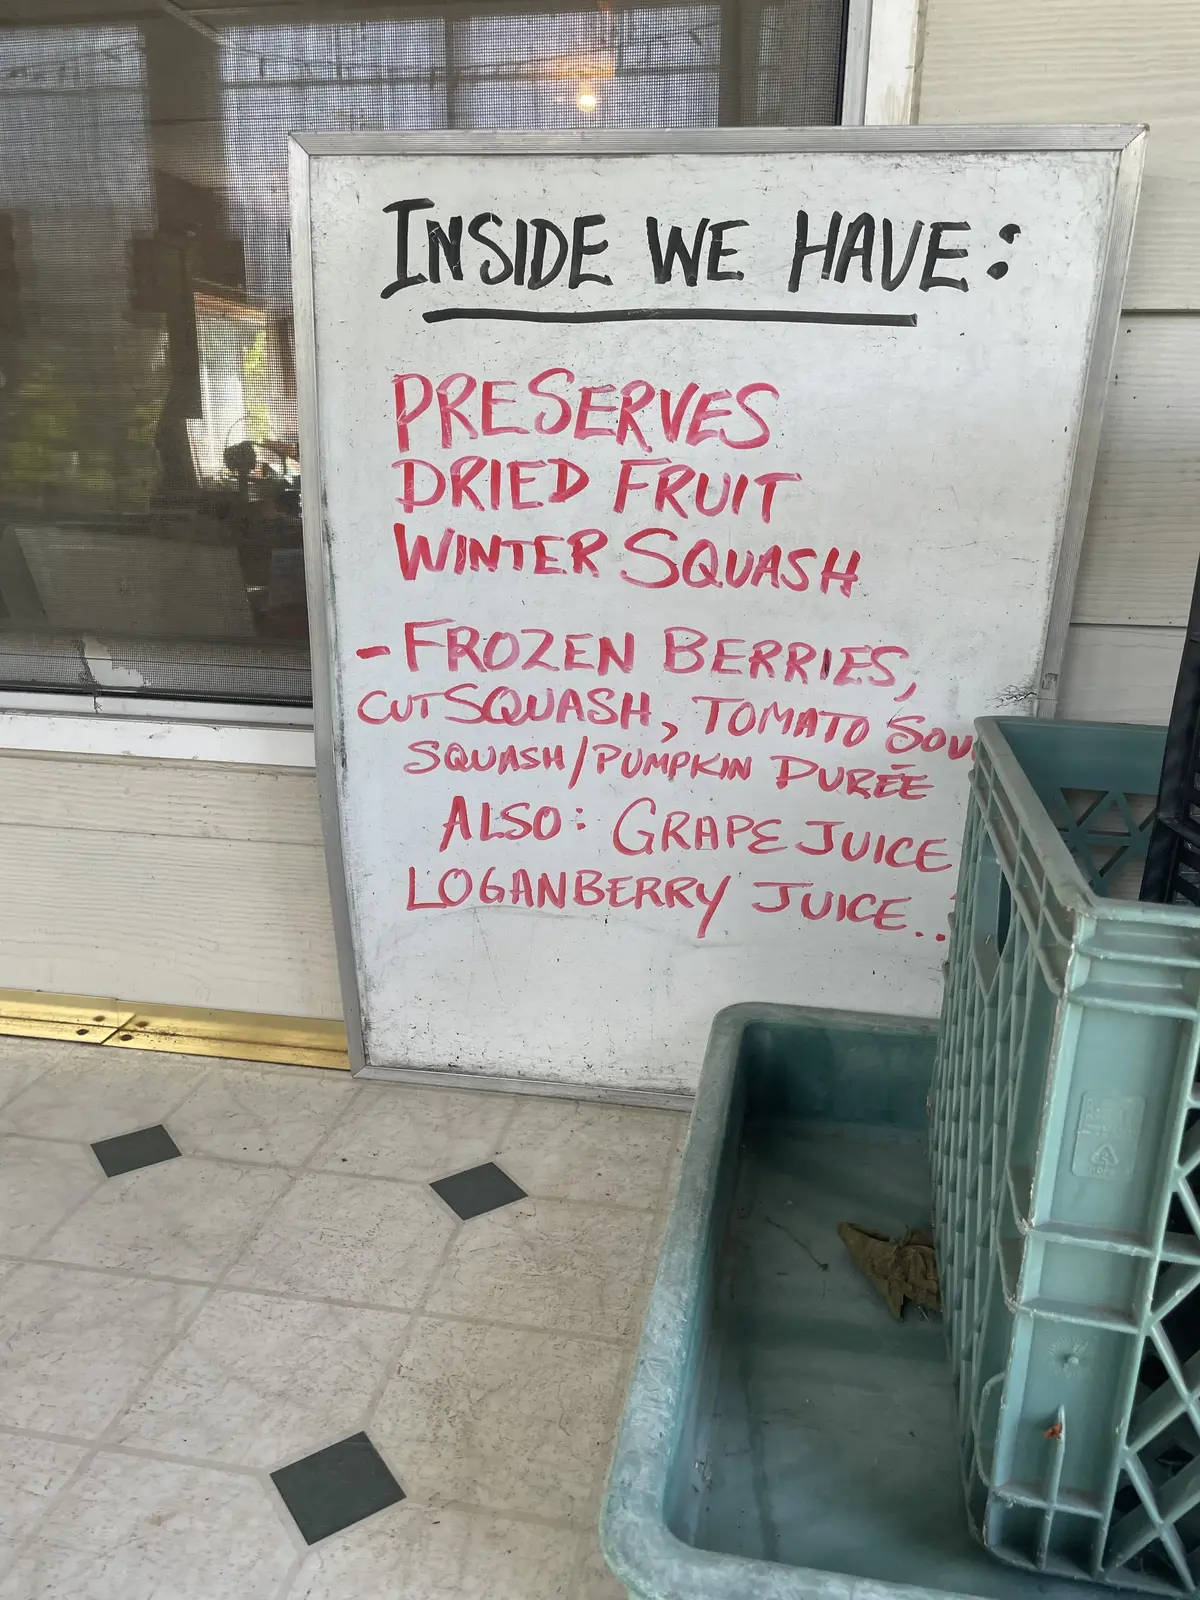 INSIDE WE HAVE:
PRESERVES
DRIED FRUIT
WINTER SQUASH
- FROZEN BERRIES,
CUT SQUASH, TOMATO SOU
SQUASH/PUMPKIN PURÉE
ALSO: GRAPE JUICE
LOGANBERRY JUICE...